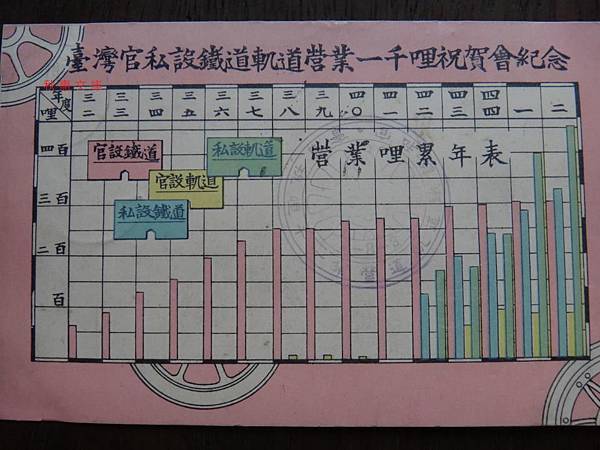 臺灣官私設鐵道軌道營業一千哩祝賀會紀念
年度 三二 三三 三四 三五 三六 三七 三八 三九 四〇 四一 四二 四三 四四 一 二
哩
營業哩累年表
四百
三百
二百
百
官設鐵道
私設軌道
官設軌道
私設鐵道